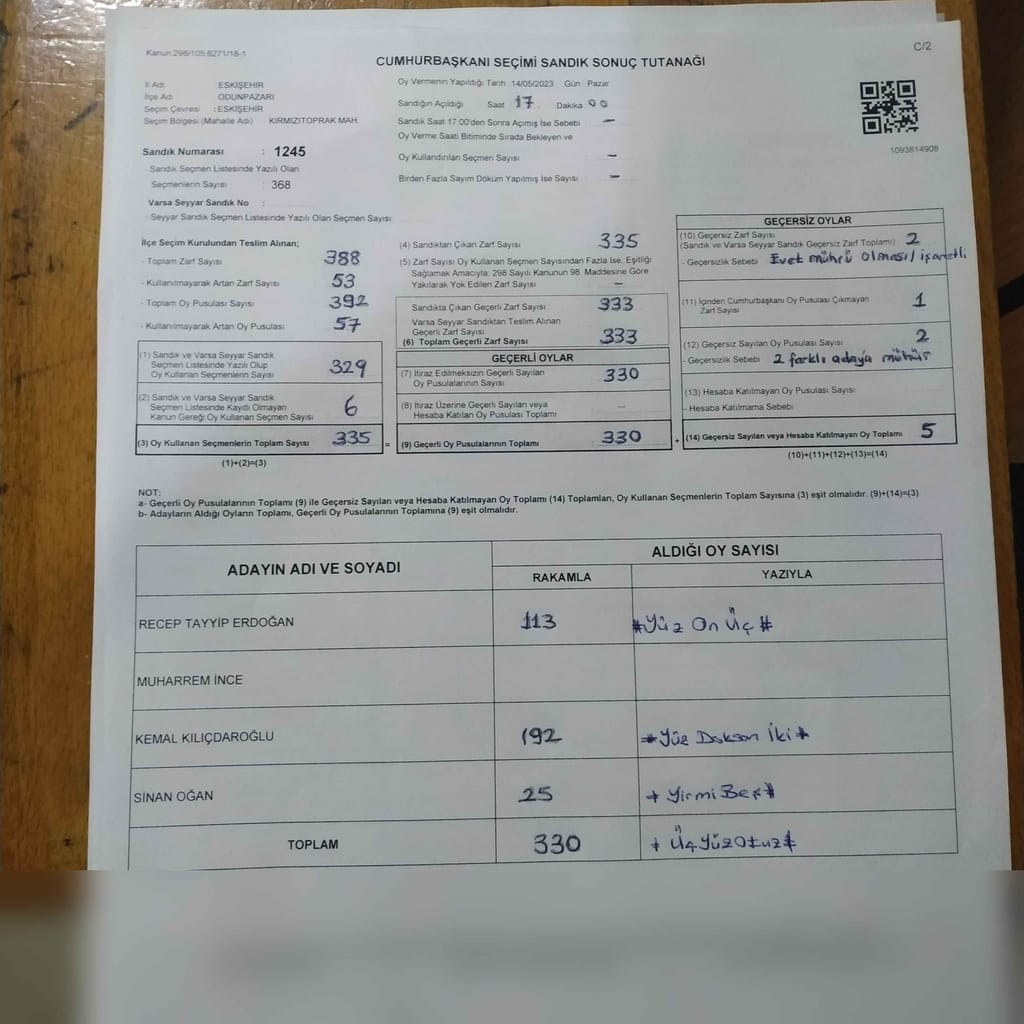 Kanun:298/105.6271/18-1
C/2
CUMHURBAŞKANI SEÇİMİ SANDIK SONUÇ TUTANAĞI
İl Adı ESKİŞEHİR
İlçe Adı ODUNPAZARI
Seçim Çevresi : ESKİŞEHİR
Seçim Bölgesi (Mahalle Adı) KIRMIZITOPRAK MAH.
Sandık Numarası : 1245
- Sandık Seçmen Listesinde Yazılı Olan
Seçmenlerin Sayısı : 368
Varsa Seyyar Sandık No :
- Seyyar Sandık Seçmen Listesinde Yazılı Olan Seçmen Sayısı
Oy Vermenin Yapıldığı Tarih 14/05/2023 Gün Pazar
Sandığın Açıldığı Saat 17 Dakika 00
Sandık Saat 17:00'den Sonra Açımış İse Sebebi –
Oy Verme Saati Bitiminde Sırada Bekleyen ve
Oy Kullandırılan Seçmen Sayısı –
Birden Fazla Sayım Döküm Yapılmış İse Sayısı –
1093814908
İlçe Seçim Kurulundan Teslim Alınan;
- Toplam Zarf Sayısı 388
- Kullanılmayarak Artan Zarf Sayısı 53
- Toplam Oy Pusulası Sayısı 392
- Kullanılmayarak Artan Oy Pusulası 57
(1) Sandık ve Varsa Seyyar Sandık
Seçmen Listesinde Yazılı Olup
Oy Kullanan Seçmenlerin Sayısı 329
(2) Sandık ve Varsa Seyyar Sandık
Seçmen Listesinde Kayıtlı Olmayan
Kanun Gereği Oy Kullanan Seçmen Sayısı 6
(3) Oy Kullanan Seçmenlerin Toplam Sayısı 335 =
(1)+(2)=(3)
(4) Sandıktan Çıkan Zarf Sayısı 335
(5) Zarf Sayısı Oy Kullanan Seçmen Sayısından Fazla İse, Eşitliği
Sağlamak Amacıyla, 298 Sayılı Kanunun 98. Maddesine Göre
Yakılarak Yok Edilen Zarf Sayısı –
Sandıkta Çıkan Geçerli Zarf Sayısı 333
Varsa Seyyar Sandıktan Teslim Alınan
Geçerli Zarf Sayısı
(6) Toplam Geçerli Zarf Sayısı 333
GEÇERLİ OYLAR
(7) İtiraz Edilmeksizin Geçerli Sayılan
Oy Pusulalarının Sayısı 330
(8) İtiraz Üzerine Geçerli Sayılan veya
Hesaba Katılan Oy Pusulası Toplamı –
(9) Geçerli Oy Pusulalarının Toplamı 330 +
GEÇERSİZ OYLAR
(10) Geçersiz Zarf Sayısı
(Sandık ve Varsa Seyyar Sandık Geçersiz Zarf Toplamı) 2
- Geçersizlik Sebebi Evet mührü olması/işaretli
(11) İçinden Cumhurbaşkanı Oy Pusulası Çıkmayan
Zarf Sayısı 1
(12) Geçersiz Sayılan Oy Pusulası Sayısı 2
- Geçersizlik Sebebi 2 farklı adaya mühür
(13) Hesaba Katılmayan Oy Pusulası Sayısı
- Hesaba Katılmama Sebebi
(14) Geçersiz Sayılan veya Hesaba Katılmayan Oy Toplamı 5
(10)+(11)+(12)+(13)=(14)
NOT:
a- Geçerli Oy Pusulalarının Toplamı (9) ile Geçersiz Sayılan veya Hesaba Katılmayan Oy Toplamı (14) Toplamları, Oy Kullanan Seçmenlerin Toplam Sayısına (3) eşit olmalıdır. (9)+(14)=(3)
b- Adayların Aldığı Oyların Toplamı, Geçerli Oy Pusulalarının Toplamına (9) eşit olmalıdır.
ADAYIN ADI VE SOYADI
ALDIĞI OY SAYISI
RAKAMLA YAZIYLA
RECEP TAYYİP ERDOĞAN 113 #Yüz On Üç#
MUHARREM İNCE
KEMAL KILIÇDAROĞLU 192 #Yüz Doksan İki#
SİNAN OĞAN 25 #Yirmi Beş#
TOPLAM 330 #ÜçYüzOtuz#